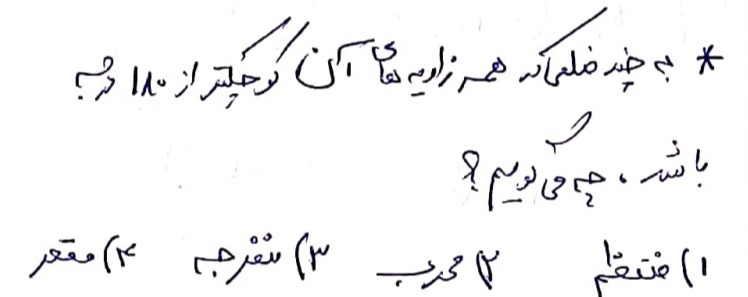 * به چند ضلعی که همه زاویه های آن کوچکتر از ۱۸۰ درجه
باشد، چه می گویم؟
۱) منتظم ۲) محدب ۳) منفرجه ۴) مقعر